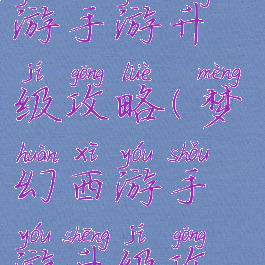 游手游升
jí gōng lüè mèng
级攻略(梦
huàn xī yóu shǒu
幻西游手
yóu shēng jí gōng
游升级攻